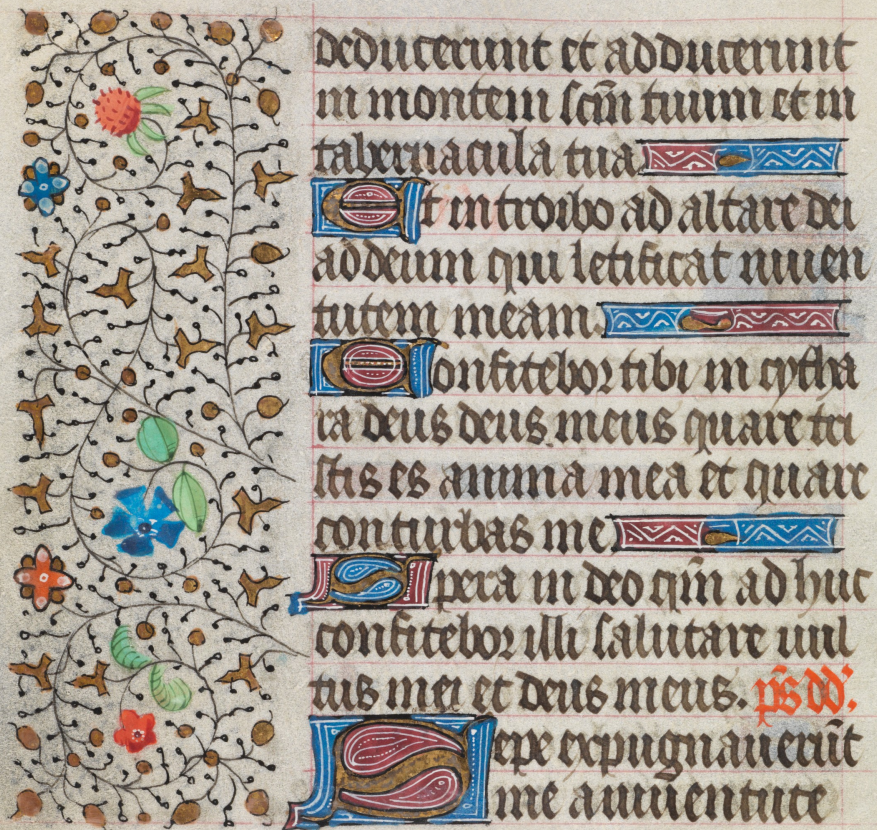 deducerunt et adducerunt
in montem scm̄ tuum et in
tabernacula tua
Et introibo ad altare dei
ad deum qui letificat iuuen
tutem meam.
Confitebor tibi in cytha
ra deus deus meus quare tri
stis es anima mea et quare
conturbas me
Spera in deo qm̄ ad huc
confitebor illi salutare uul
tus mei et deus meus. ps̄ dd̾.
Sepe expugnauerūt
me a iuuentute